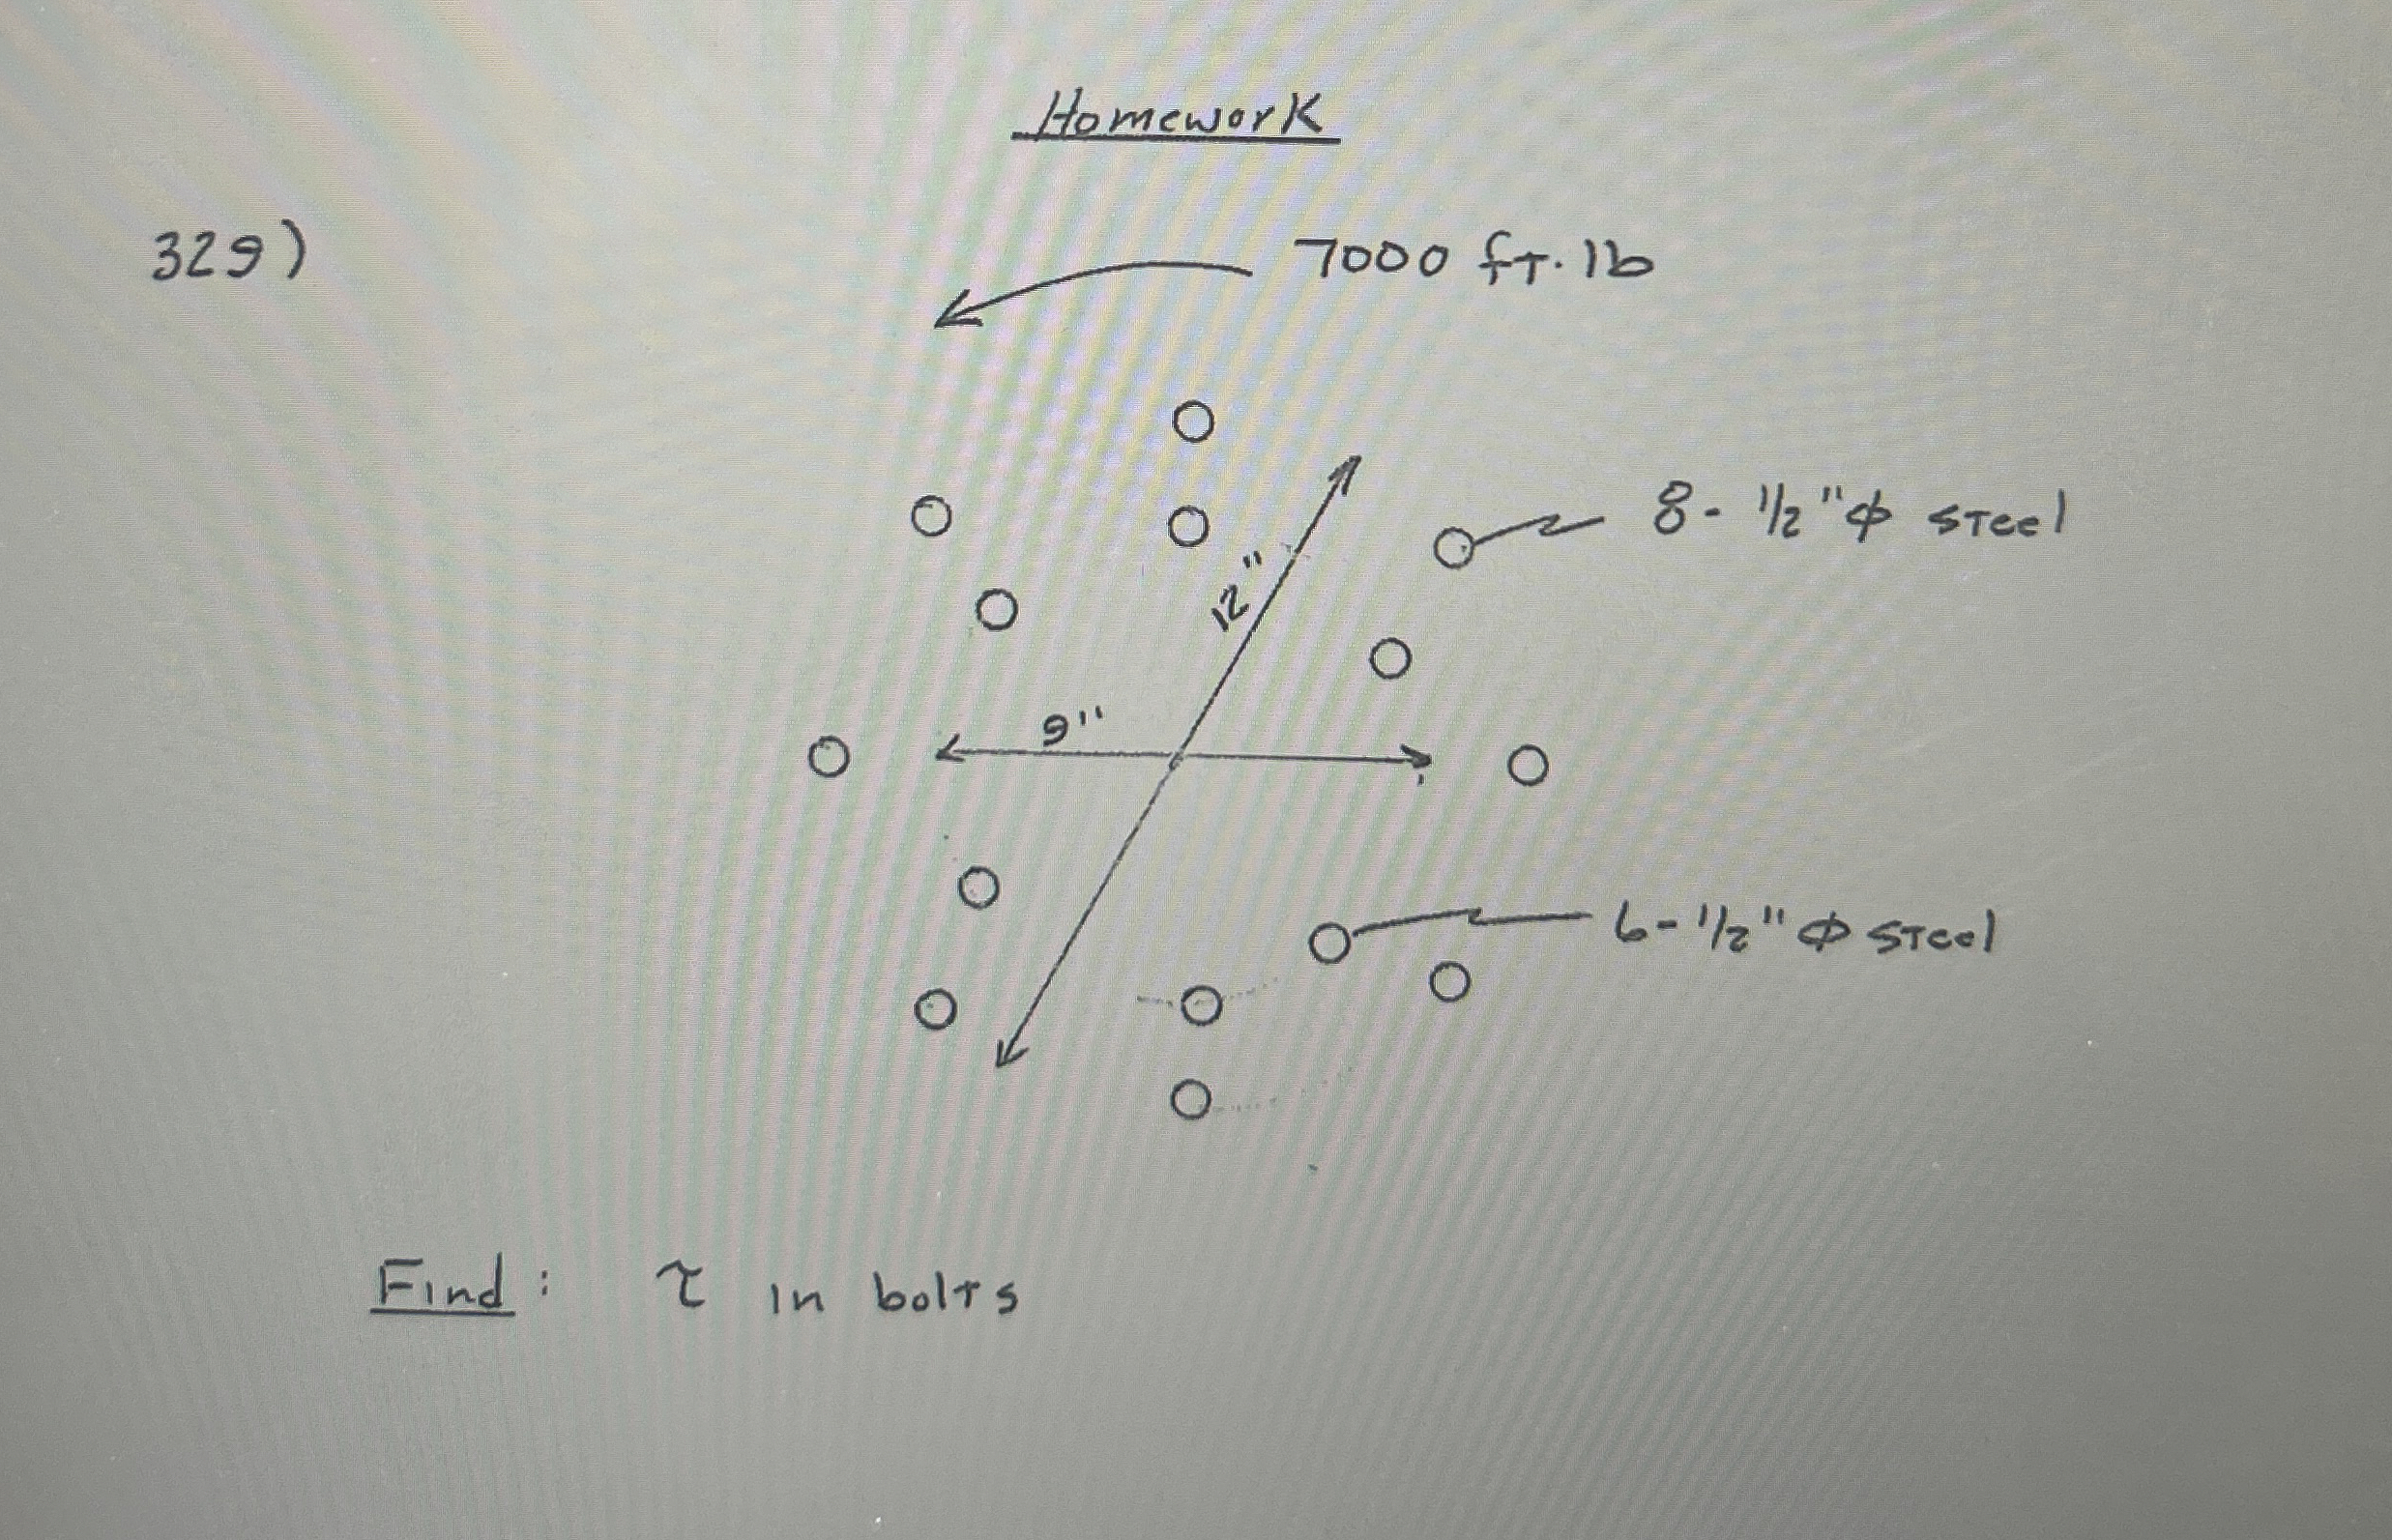 Homework
329)
7000 ft.lb
8- 1/2" ϕ steel
12"
9"
6- 1/2" ϕ steel
Find: τ in bolts